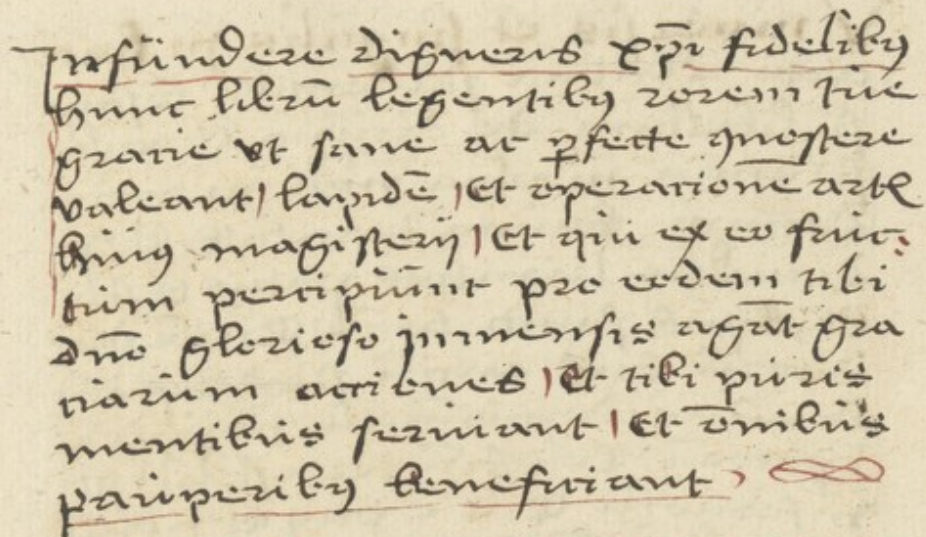 Infundere digneris xp̄i fidelibꝰ
hunc librū legentibꝰ rorem tue
gracie vt sane ac ꝑfecte ꝯnoscere
valeant / lapidē / Et operacionē artꝭ
huiꝰ magisterij / Et qui ex eo fruc:
tum percipiunt pro eodem tibi
dn̄o glorioso inmensis agāt gra
ciarum acciones / Et tibi puris
mentibus seruiant / Et om̄ibus
pauperibꝰ beneficiant